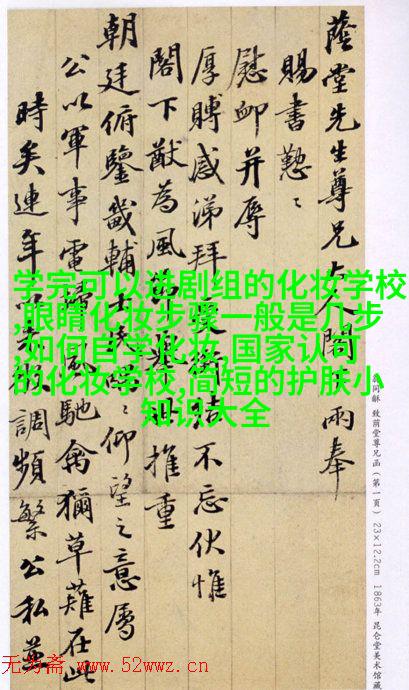 蔭堂先生尊兄大人閣 兩奉
賜書懃〻
慰卹并辱
厚賻感涕拜 不忘伏惟
閣下猷為風 推重
朝廷俯鑒畿輔士 〻仰望之意屬
公以軍事電 風馳禽獮草薙在此
時矣連年 調頻繁公私並
学完可以进剧组的化妆学校
,眼睛化妆步骤一般是几步
,如何自学化妆,国家认可
的化妆学校,简短的护肤小
知识大全
同龢 致蔭堂尊兄函(第一頁) 23×12.2cm 1863年 昆仑堂美术馆藏
无为斋 www.52wwz.cn